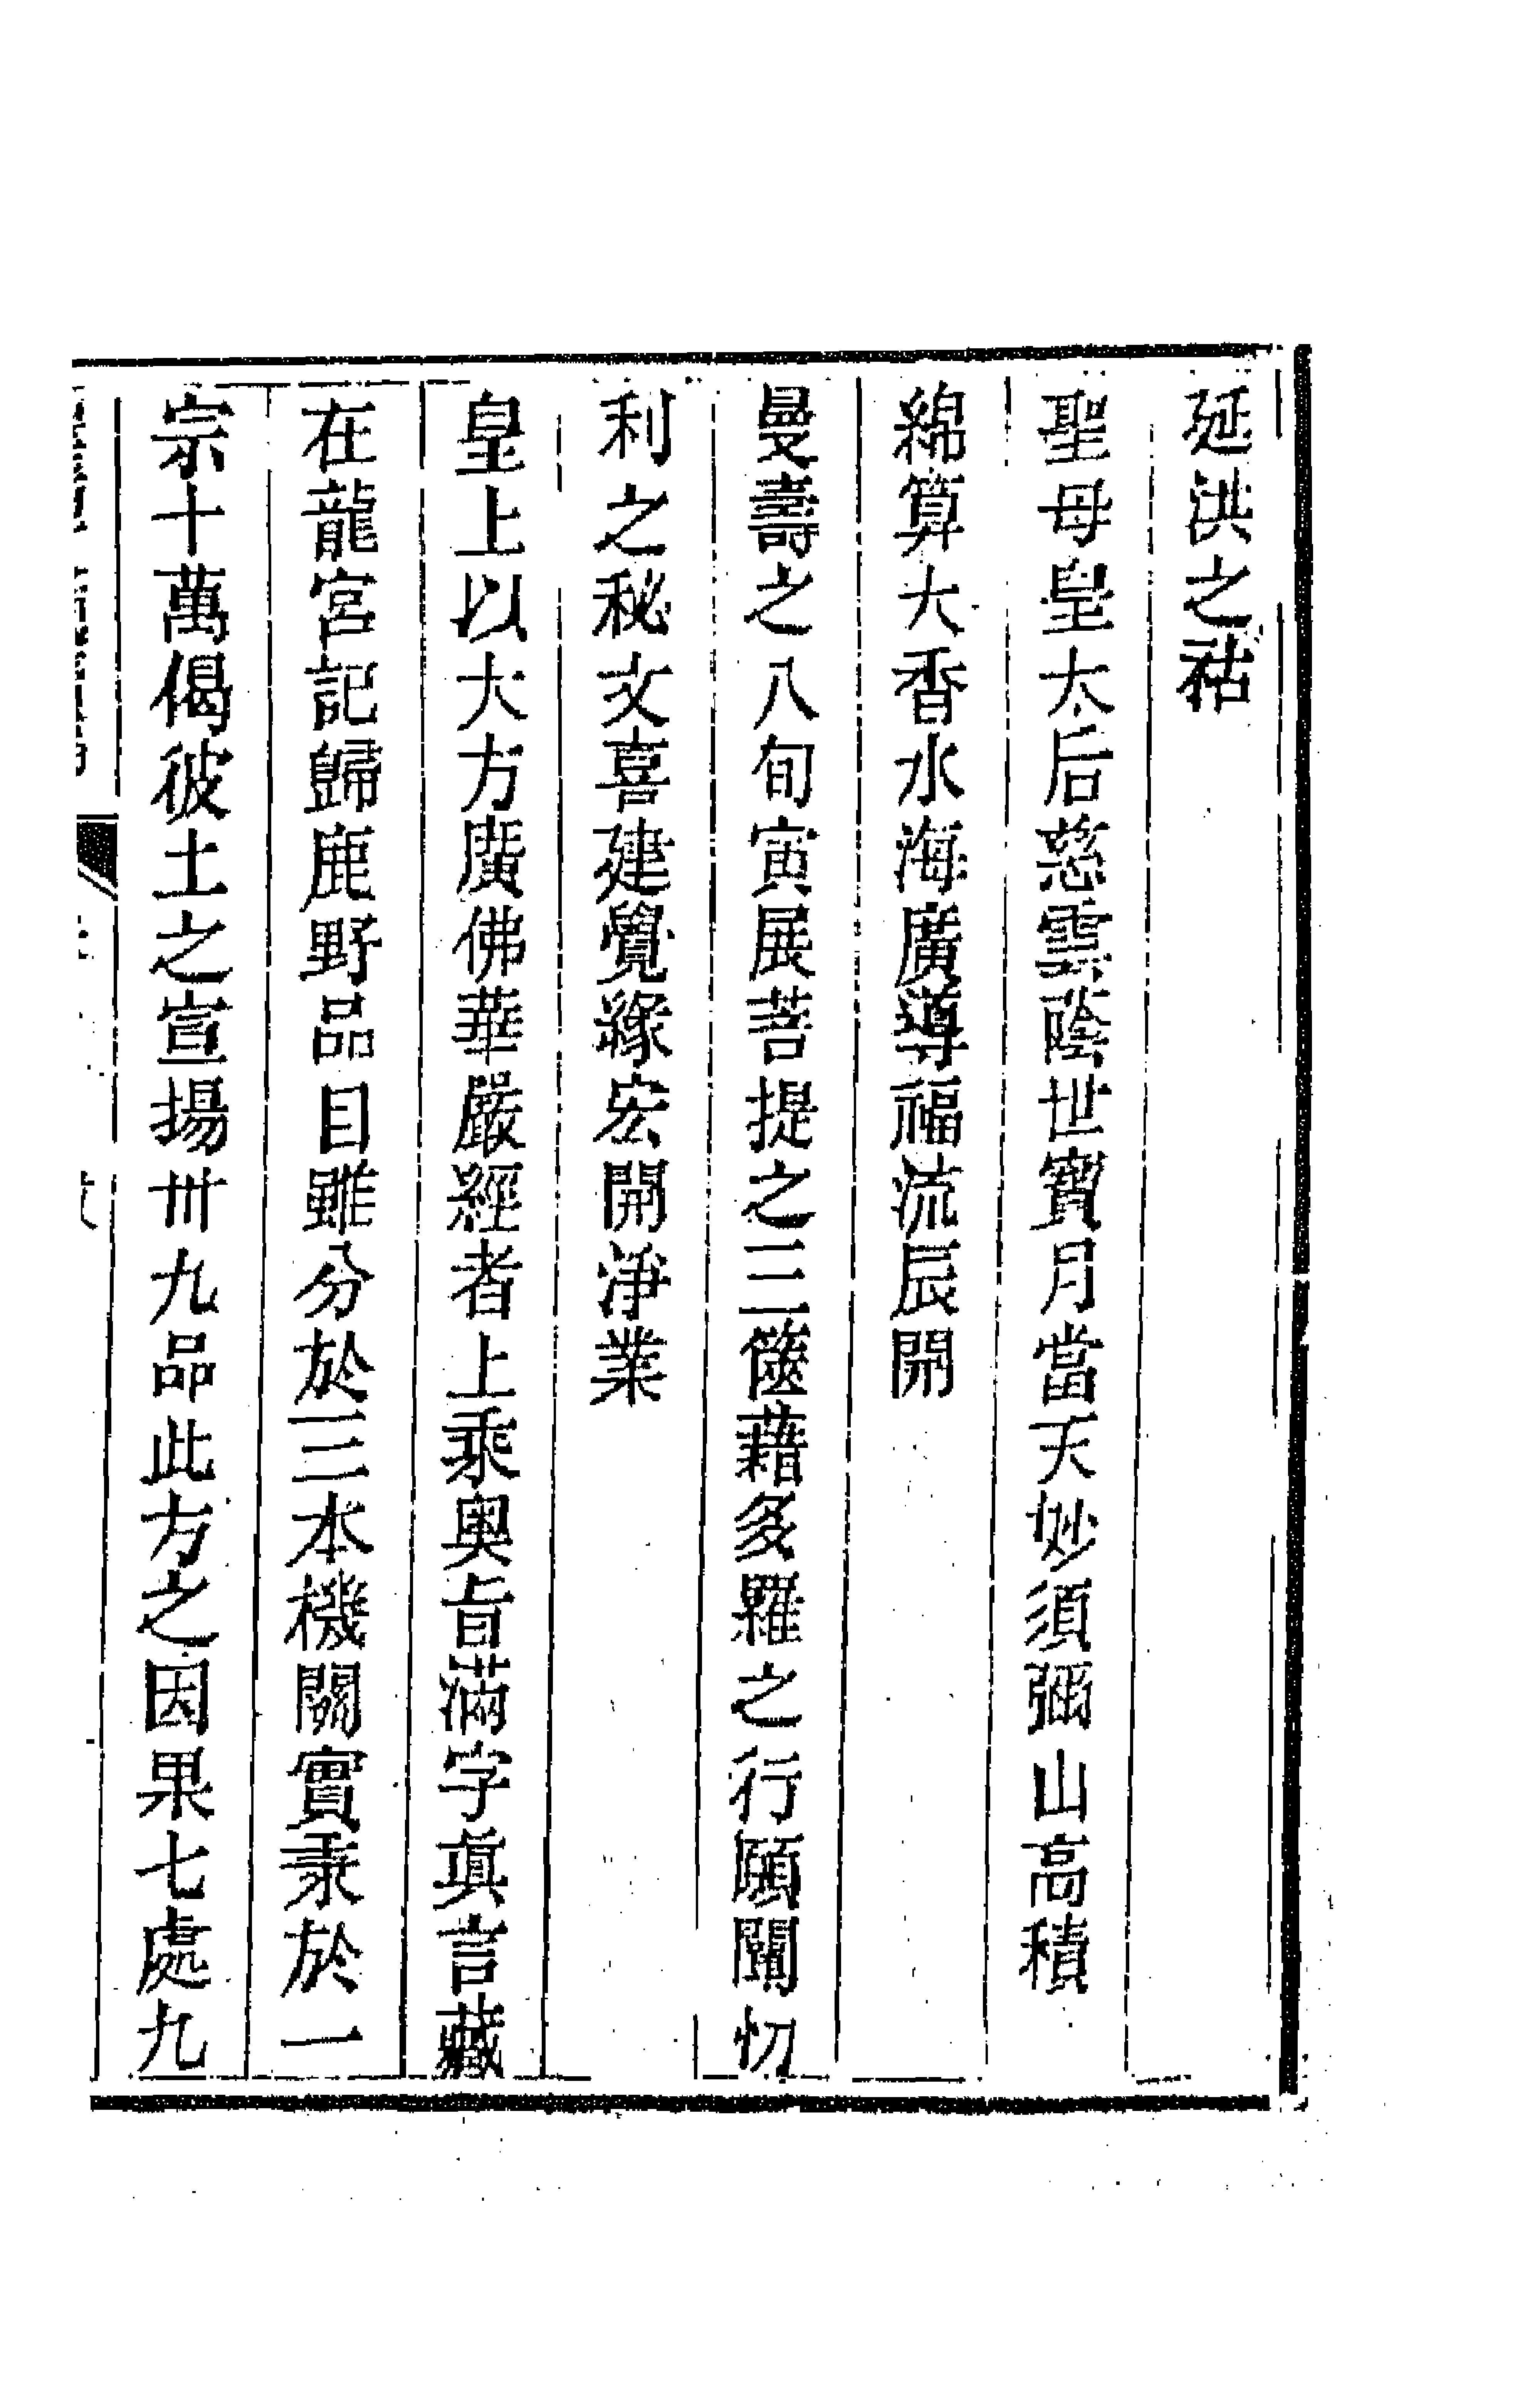 延洪之祜
聖母皇太后慈雲蔭世寶月當天妙須彌山高積
綿算大香水海廣導福流辰開
曼壽之八旬寅展菩提之三篋藉多羅之行願闡忉
利之秘文喜建覺緣宏開淨業
皇上以大方廣佛華嚴經者上乘奧旨滿字真言藏
在龍宮記歸鹿野品目雖分於三本機關實秉於一
宗十萬偈彼土之宣揚卅九品此方之因果七處九